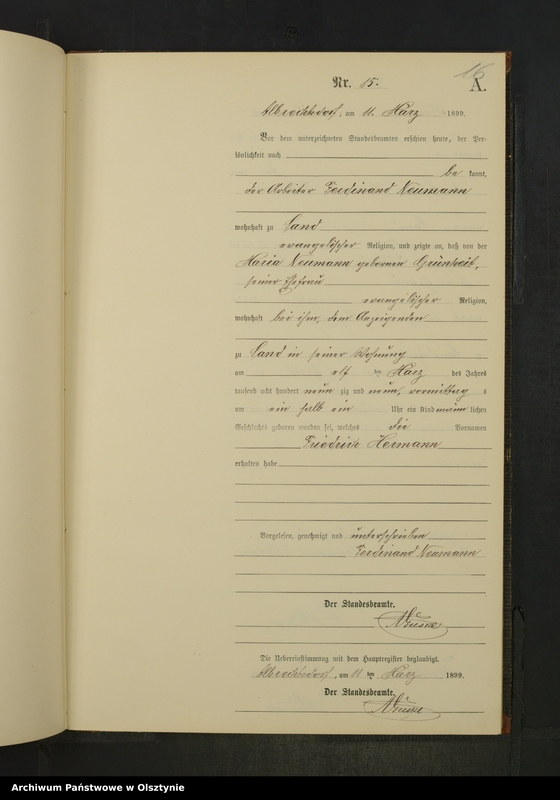 16
Nr. 15.
A.
Albrechtsdorf, am 11. März 1899.
Vor dem unterzeichneten Standesbeamten erschien heute, der Per-
sönlichkeit nach
be kannt,
der Arbeiter Ferdinand Neumann
wohnhaft zu Sand
evangelischer Religion, und zeigte an, daß von der
Maria Neumann geborenen Grünheit,
seiner Ehefrau
evangelischer Religion,
wohnhaft bei ihm, dem Anzeigenden
zu Sand in seiner Wohnung
am elf ten März des Jahres
tausend acht hundert neun zig und neun, vormittag s
um ein halb ein Uhr ein Kind männ lichen
Geschlechts geboren worden sei, welches die Vornamen
Friedrich Hermann
erhalten habe
Vorgelesen, genehmigt und unterschrieben
Ferdinand Neumann
Der Standesbeamte.
Die Uebereinstimmung mit dem Hauptregister beglaubigt.
Albrechtsdorf, am 11 ten März 1899.
Der Standesbeamte.
Archiwum Państwowe w Olsztynie